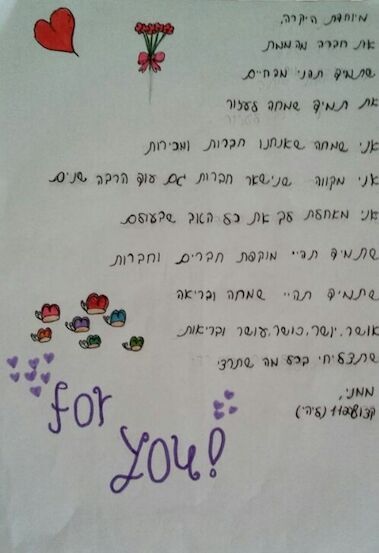 מיוחדת היקרה,
את חברה מהממת
שתמיד תהני מהחיים
את תמיד שמחה לעזור
אני שמחה שאנחנו חברות ומכירות
אני מקווה שנישאר חברות גם עוד הרבה שנים
אני מאחלת לך את כל הטוב שבעולם
שתמיד תהיי מוקפת חברים וחברות
שתמיד תהיי שמחה ובריאה
אושר, יושר, כושר, עושר ובריאות
שתצליחי בכל מה שתרצי
ממני,
for
you!